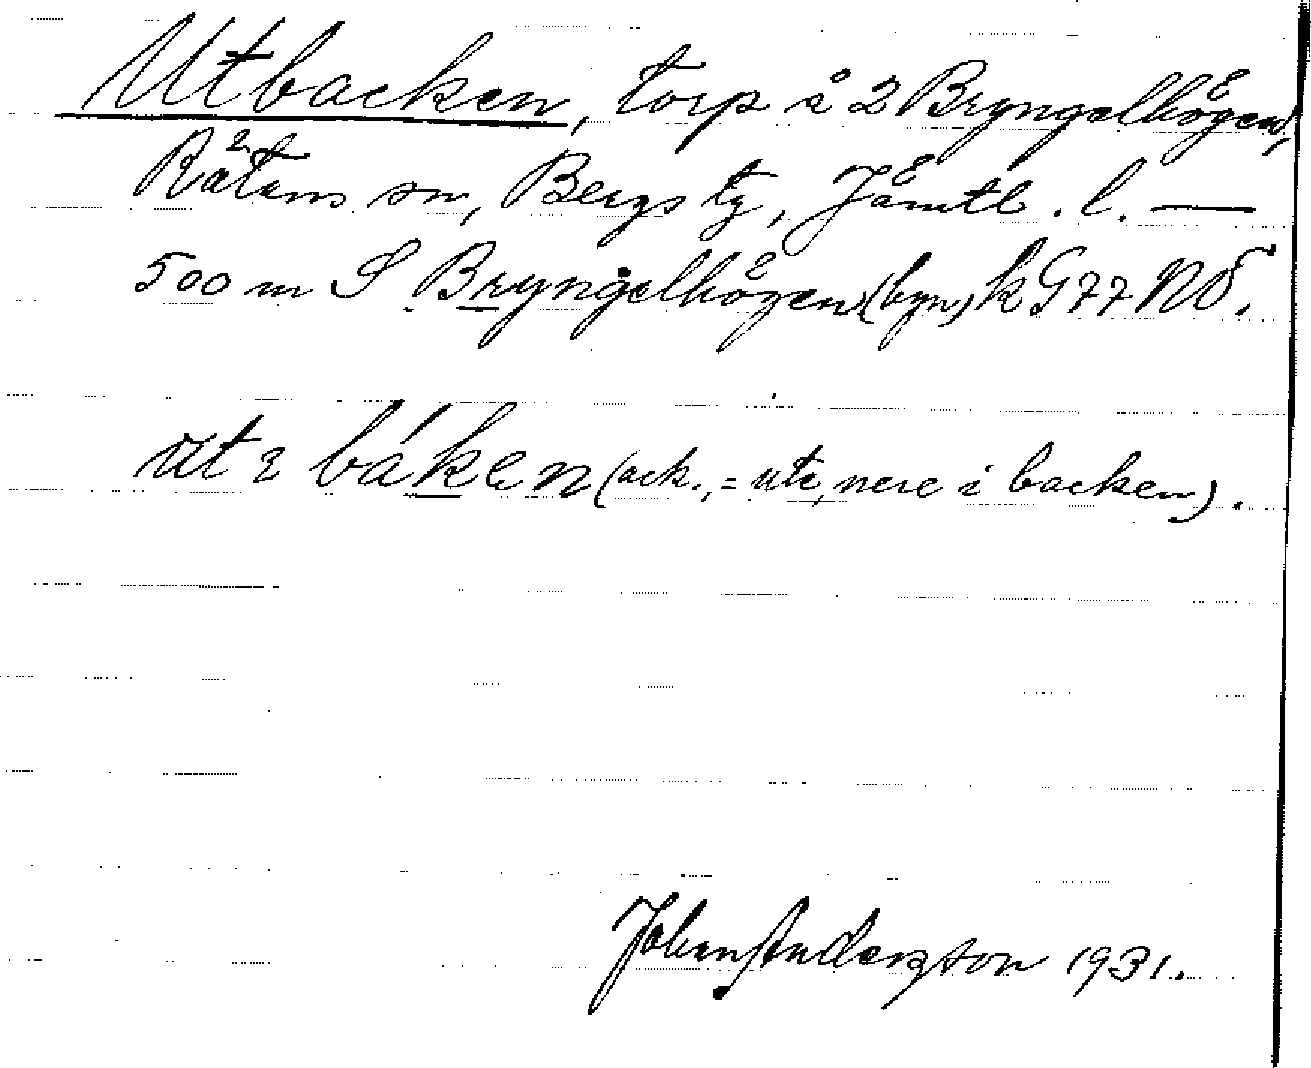 Utbacken, torp å 2 Bryngelhögen,
Rätans sn, Bergs tg, Jämtl. l. —
500 m S Bryngelhögen (byn) k G 77 NO.
báken (ack., = ute, nere i backen).
Johan Anderzson 1931.